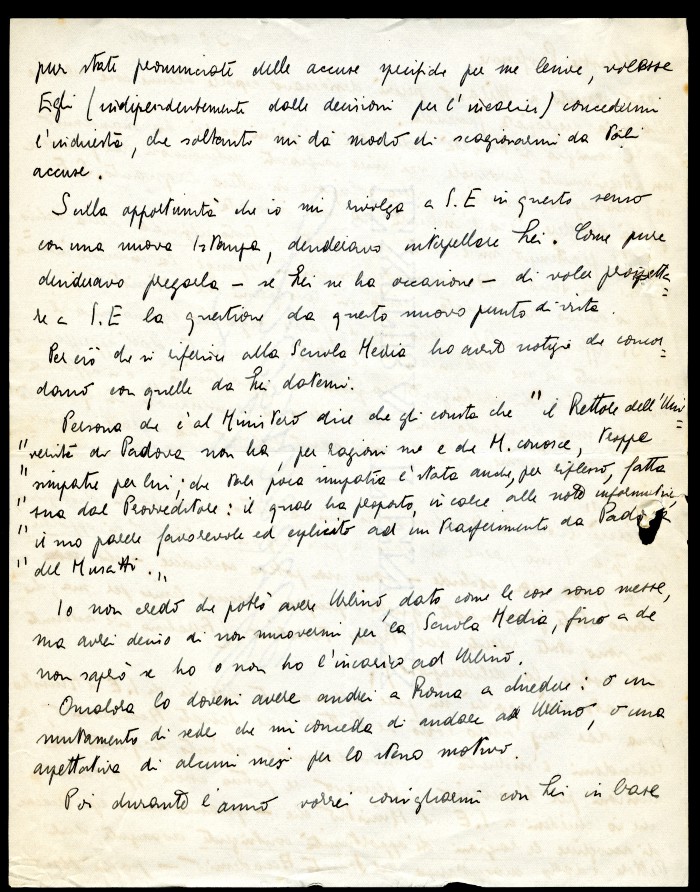 pur state pronunciate delle accuse specifiche per me lesive, volesse
Egli (indipendentemente dalle decisioni per l'incarico) concedermi
l'inchiesta, che soltanto mi dà modo di scagionarmi da tali
accuse.
Sulla opportunità che io mi rivolga a S.E in questo senso
con una nuova istanza, desideravo interpellare Lei. Come pure
desideravo pregarla - se Lei ne ha occasione - di voler prospetta=
re a S.E la questione da questo nuovo punto di vista.
Per ciò che si riferisce alla Scuola Media ho avuto notizie che concor=
dano con quelle da Lei datemi.
Persona che è al Ministero dice che gli consta che "il Rettore dell'Uni=
"versità di Padova non ha, per ragioni me e che M. conosce, troppe
"simpatie per lui; che tale poca simpatia è stata anche, per riflesso, fatta
"sua dal Provveditore: il quale ha proposto, in calce alle note informative,
"il suo parere favorevole ed esplicito ad un trasferimento da Padova
"del Musatti."
Io non credo che potrò avere Urbino, dato come le cose sono messe,
ma avrei deciso di non muovermi per la Scuola Media, fino a che
non saprò se ho o non ho l'incarico ad Urbino.
Qualora lo dovessi avere andrei a Roma a chiedere: o un
mutamento di sede che mi conceda di andare ad Urbino, o una
aspettativa di alcuni mesi per lo stesso motivo.
Poi durante l'anno vorrei consigliarmi con Lei in base